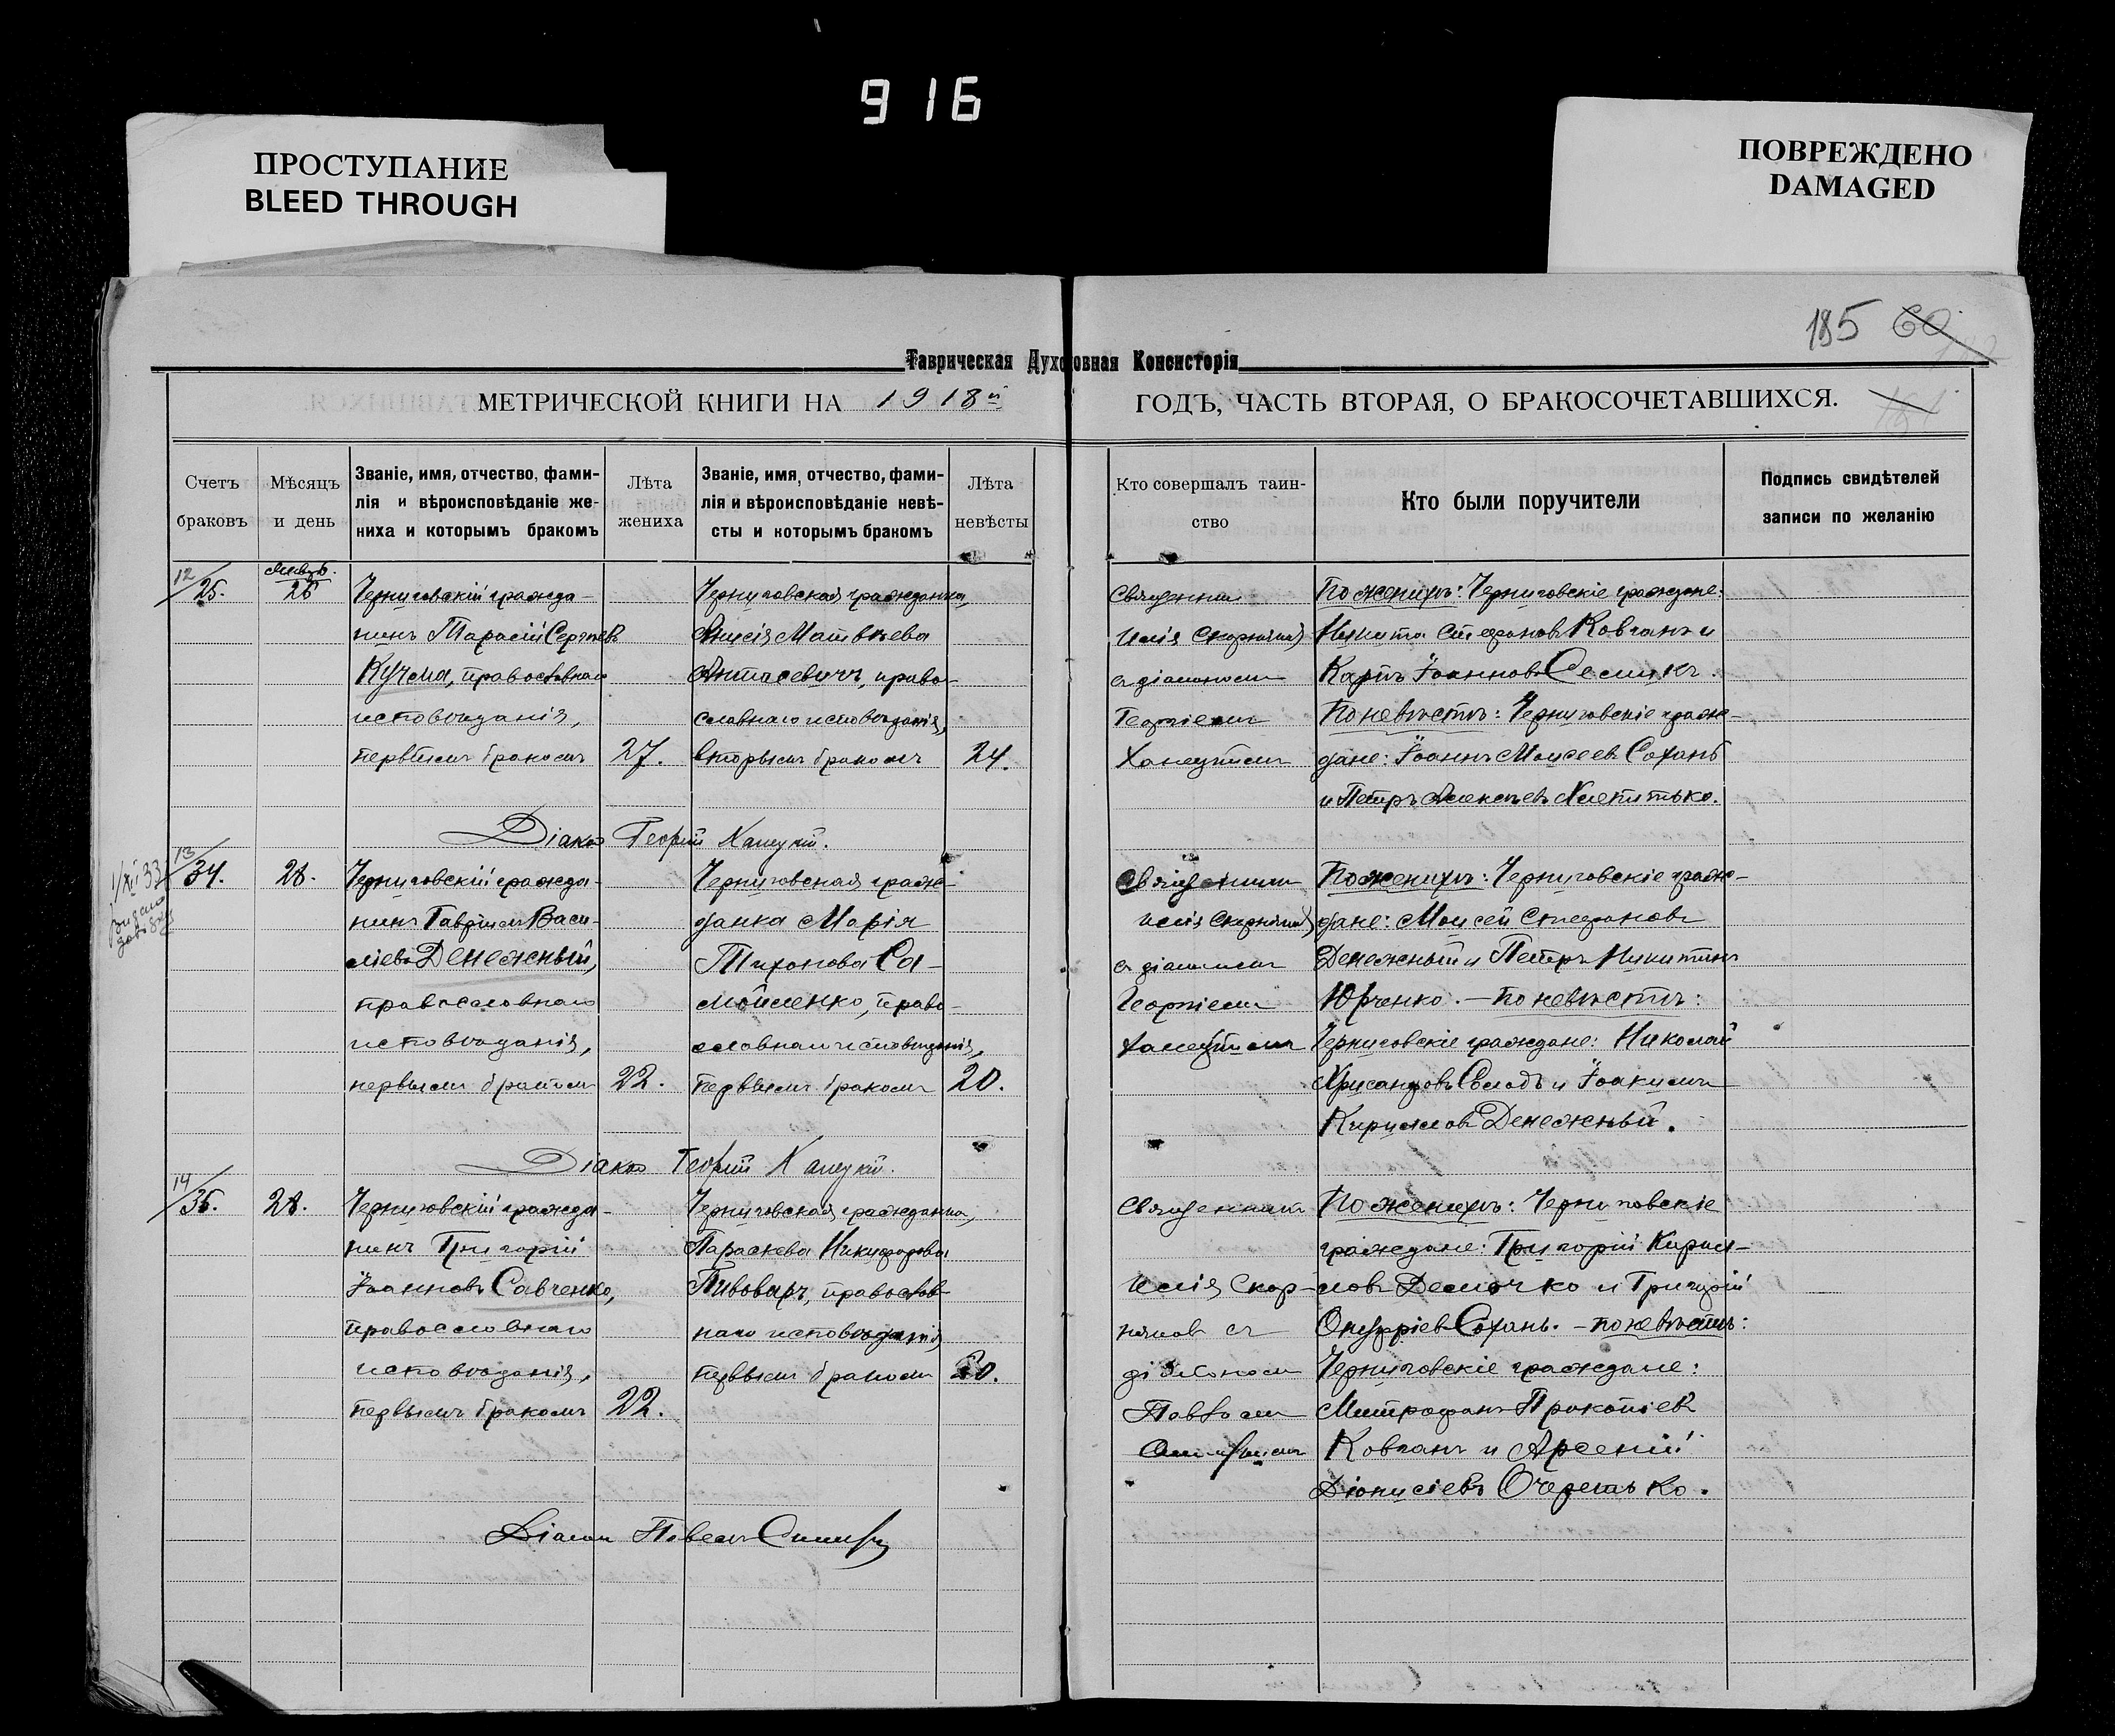 916
ПРОСТУПАНИЕ
BLEED THROUGH
ПОВРЕЖДЕНО
DAMAGED
185 60
Таврическая Духовная Консисторія
МЕТРИЧЕСКОЙ КНИГИ НА 1918й ГОДЪ, ЧАСТЬ ВТОРАЯ, О БРАКОСОЧЕТАВШИХСЯ.
181
Счетъ
браковъ
Мѣсяцъ
и день
Званіе, имя, отчество, фами-
лія и вѣроисповѣданіе же-
ниха и которымъ бракомъ
Лѣта
жениха
Званіе, имя, отчество, фами-
лія и вѣроисповѣданіе невѣ-
сты и которымъ бракомъ
Лѣта
невѣсты
Кто совершалъ таин-
ство
Кто были поручители
Подпись свидѣтелей
записи по желанію
12/25.
26
Черниговскій гражда-
нинъ Тарасій Сергѣевъ
Кучма, православнаго
исповѣданія,
первымъ бракомъ
27.
Черниговская гражданка,
Анисія Матвѣева
Антасевичъ, право-
славнаго исповѣданія,
вторымъ бракомъ
24.
Священник
Илія Скорняков
съ діакономъ
Георгіемъ
Ханецкимъ
По женихѣ: Черниговскіе граждане:
Никита Стефановъ Ковганъ и
Карпъ Іоанновъ Семикъ.
По невѣстѣ: Черниговскіе граж-
дане: Іоаннъ Моисеевъ Сохань
и Петръ Алексѣевъ Хлепитько.
Діакон Георгій Ханецкій.
1/XII 33
13/34.
28.
Черниговскій гражда-
нинъ Гавріилъ Васи-
ліевъ Денежный,
православнаго
исповѣданія,
первымъ бракомъ
22.
Черниговская граж-
данка Марія
Тихонова Са-
мойленко, право-
славнаго исповѣданія,
первымъ бракомъ
20.
Священник
Илія Скорняков
съ діакономъ
Георгіемъ
Ханецкимъ
По женихѣ: Черниговскіе граж-
дане: Моисей Стефановъ
Денежный и Петръ Никитинъ
Юрченко. — По невѣстѣ:
Черниговскіе граждане: Николай
Хрисанфовъ Солодъ и Іоакимъ
Кирилловъ Денежный.
Діакон Георгій Ханецкій.
14/35.
28.
Черниговскій гражда-
нинъ Григорій
Іоанновъ Савченко,
православнаго
исповѣданія,
первымъ бракомъ
22.
Черниговская гражданка,
Параскева Никифорова
Пивоваръ, православ-
наго исповѣданія,
первымъ бракомъ
20.
Священник
Илія Скор-
няков съ
діакономъ
Павломъ
По женихѣ: Черниговскіе
граждане: Григорій Кирил-
ловъ Демочко и Григорій
Онуфріевъ Сохань. — по невѣстѣ:
Черниговскіе граждане:
Митрофанъ Прокопіевъ
Ковганъ и Арсеній
Діонисіевъ Очеретько.
Діакон Павелъ